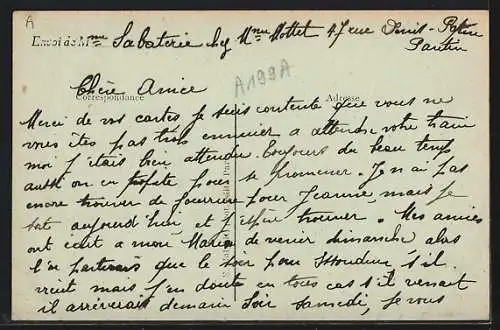 A
Envoi de Mme Sabaterie chez Mme Mottet 47 rue Denis-Papin
Pantin
Chère Amice
A199A
Correspondance Adresse
Merci de vos cartes je suis contente que vous ne
vous êtes pas trop ennuier a attendre votre train
moi j'étais bien attendue. Toujours du beau temps
aussi on en profite pour se promener. Je n'ai pas
encore trouver de fourrure pour Jeanne, mais je
sort aujourd'hui et j'espère trouver. Mes amies
ont écrit a mon Mari de venir dimanche alors
l'on partirais que le soir pour Issoudun s'il
veut mais j'en doute en tous cas s'il venait
il arriverait demain soir samedi, je vous